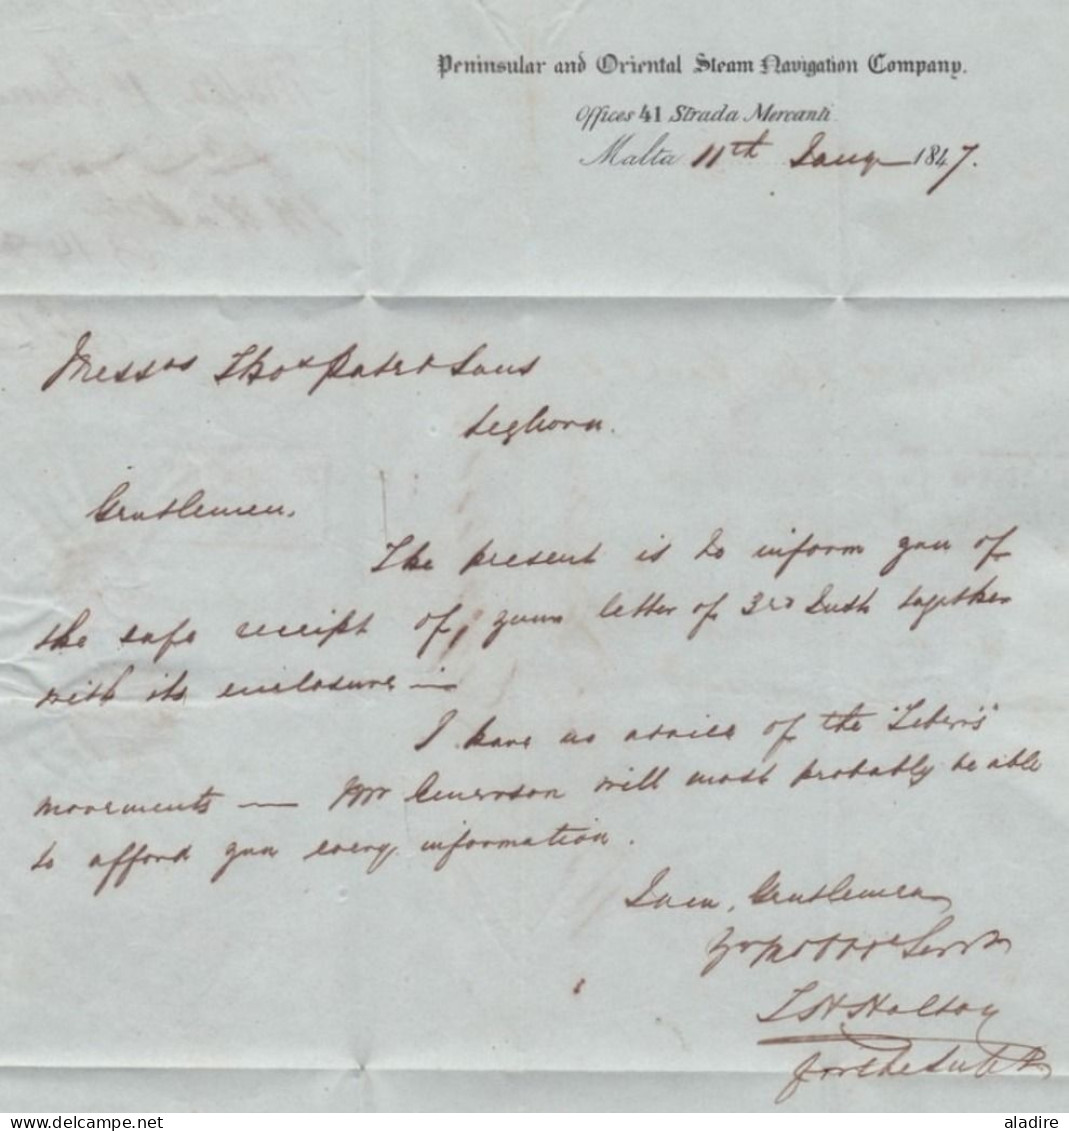 Peninsular and Oriental Steam Navigation Company.
Offices 41 Strada Mercanti
Malta 11th Jany 1847.
Messrs Thos Pate & Sons
Leghorn.
Gentlemen,
The present is to inform you of
the safe receipt of, your letter of 3rd Inst together
with its enclosure —
I have no advice of the "Tiber's"
movements — Mr will most probably be able
to afford you every information.
I am, Gentlemen
Yr Mo Obt Servt
for the
aladire